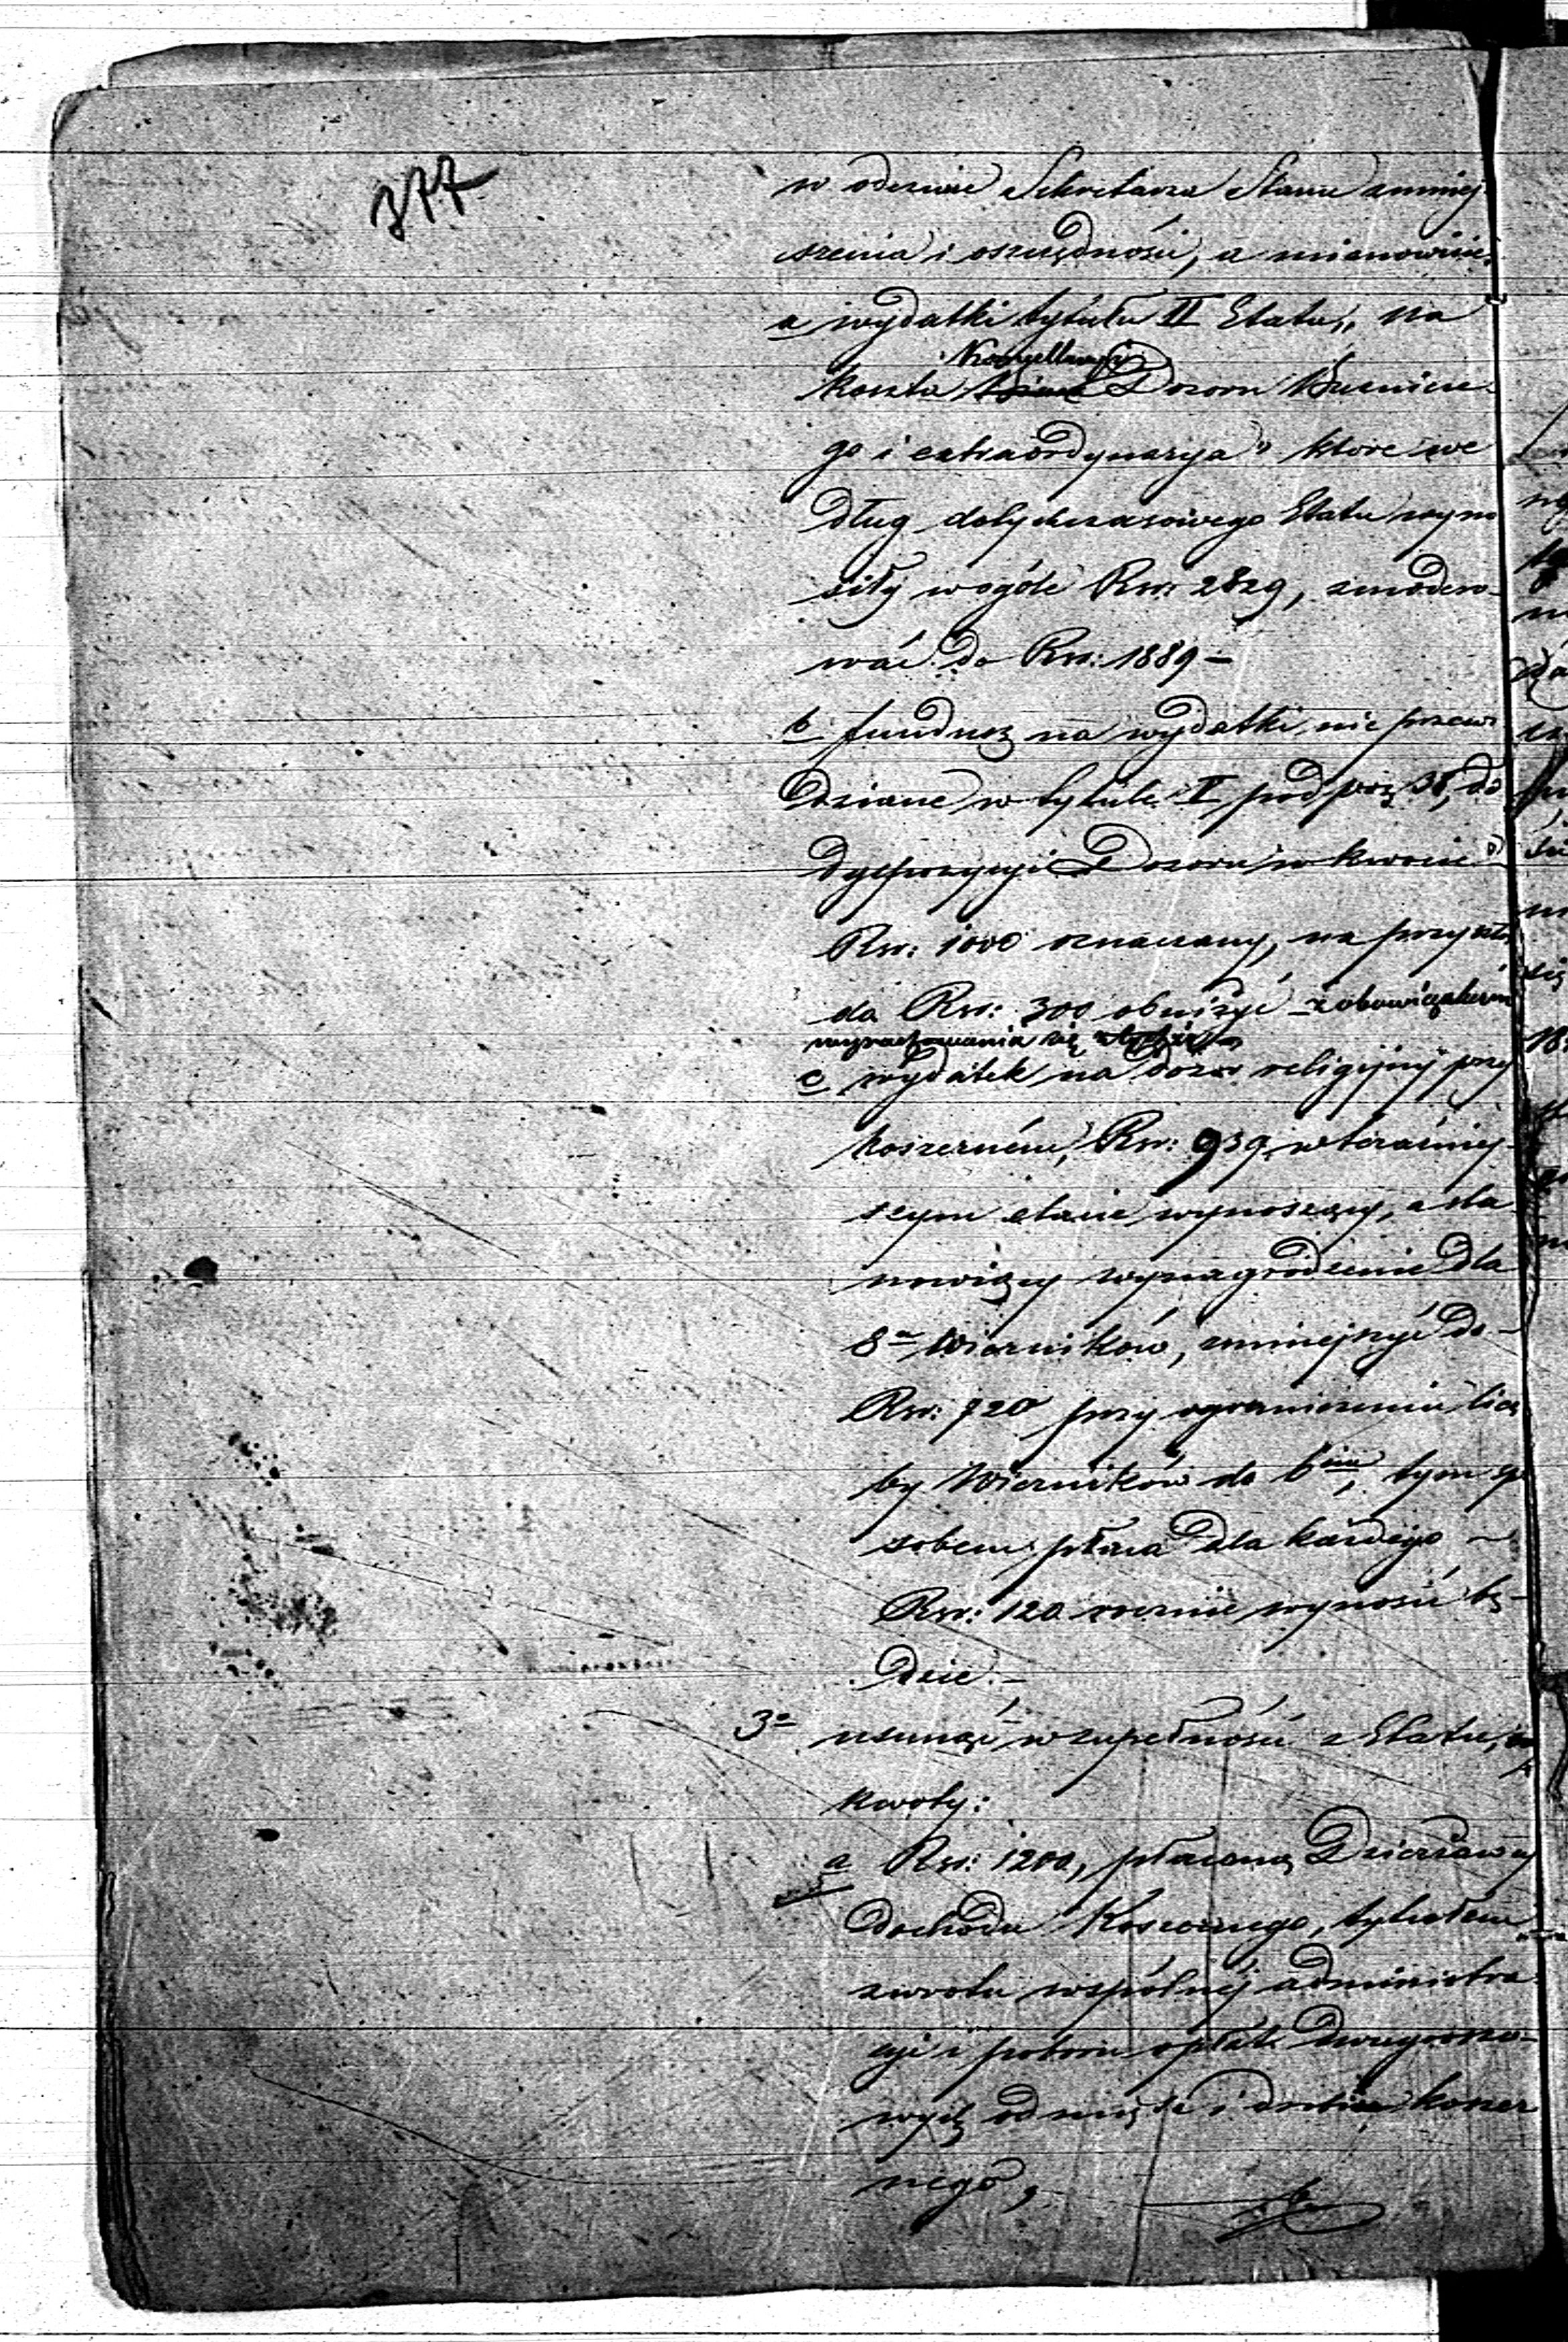 377
w odezwie Sekretarza Stanu zmniej-
szenia i oszczędności, a mianowicie
a wydatki tytułu II Etatu „na
Kancellaryi
koszta Dozoru Bużnicze-
go i extraordynarya" które we
dług dotychczasowego Etatu wyno
siły wogóle Rsr: 2829, zmodero-
wać do Rsr: 1889 –
b fundusz na wydatki nie przewi
dziane w tytule I pod poz 38, do
dyspozycyi Dozoru w kwocie
Rsr: 1000 oznaczony, na przyszłość
do Rsr: 300 obniżyć – z obowiązkiem
wyrachowania się
c wydatek na dozór religijny przy
koszerném, Rsr: 939 w teraźniej-
szym etacie wynoszący, a sta-
nowiący wynagrodzenie dla
8u Wierników, zmniejszyć do –
Rsr: 720 przy ograniczeniu licz
by Wierników do 6ciu, tym spo
sobem płaca dla każdego –
Rsr: 120 rocznie wynosić bę-
dzie. –
3o usunąć w zupełności z Etatu,
kwoty:
a Rsr: 1200, płaconą Dzierżawcy
dochodu Koszernego, tytułem
zwrotu wspólnéj administra-
cyi i poboru opłat dwugroszo-
wych od mięsa i drobiu koszer
nego,